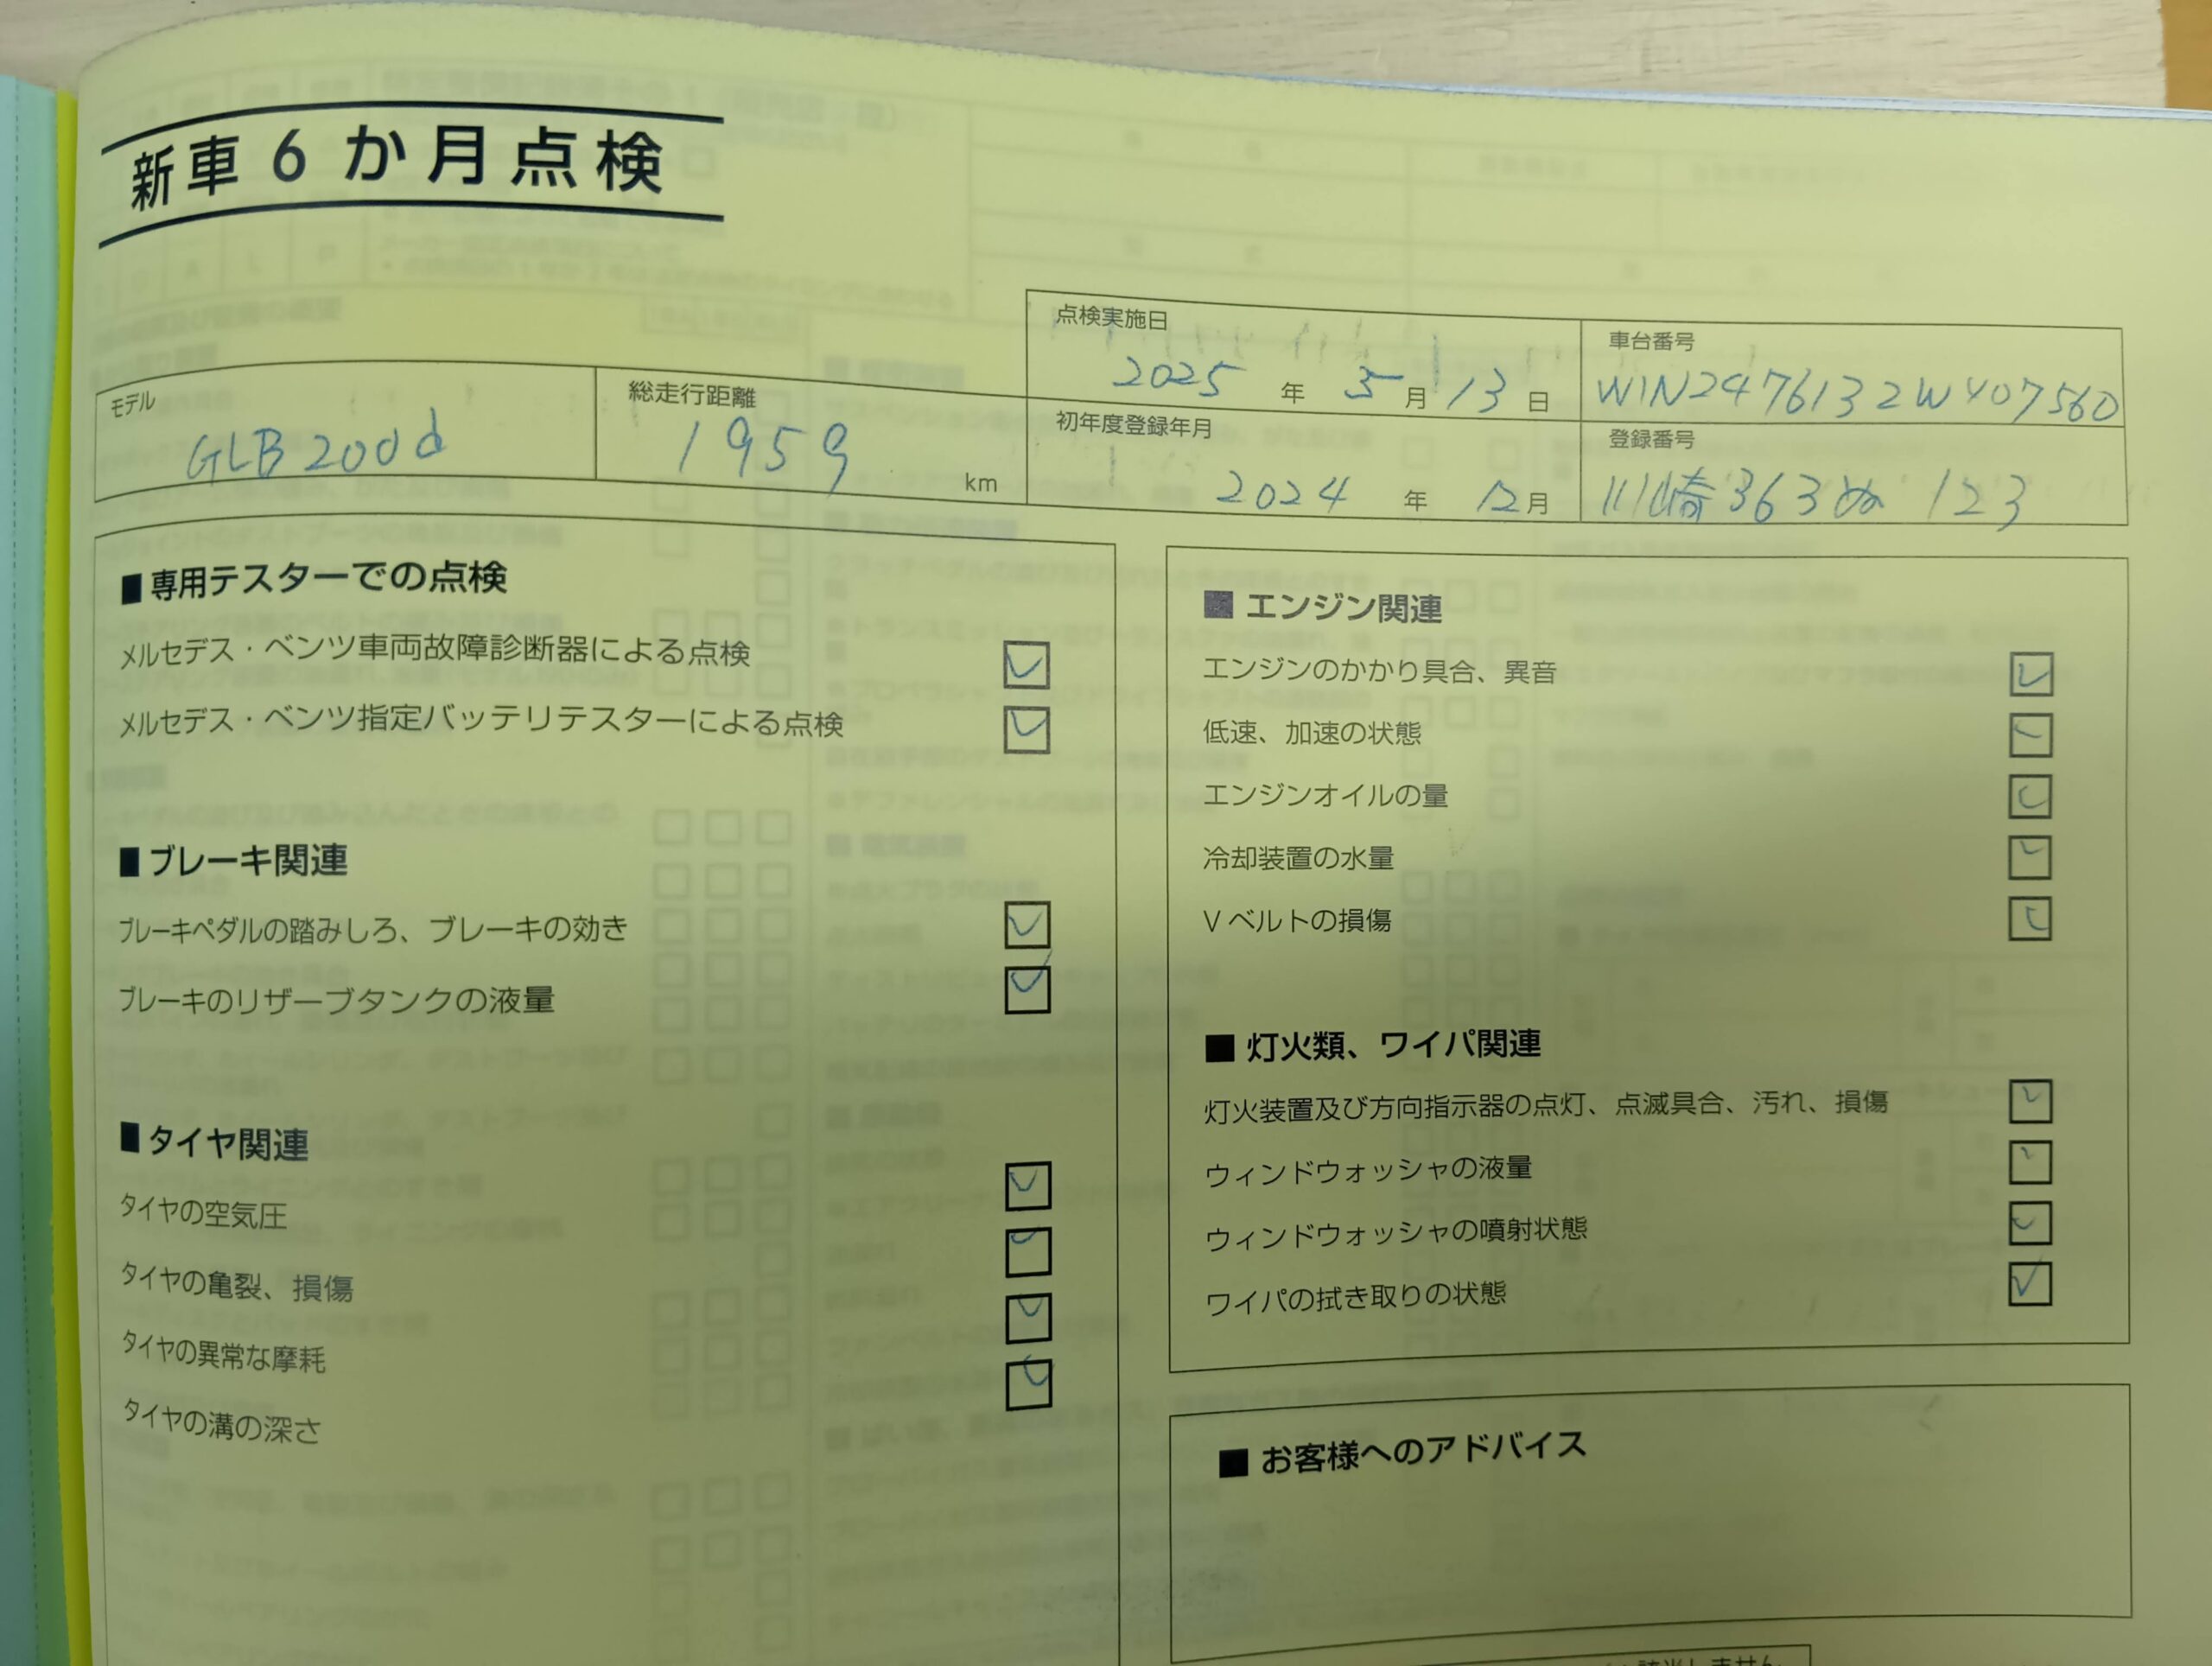 新車6か月点検
点検実施日 2025年5月13日
車台番号 W1N2476132W407560
モデル GLB200d
総走行距離 1959 km
初年度登録年月 2024年12月
登録番号 川崎363ぬ 123
■専用テスターでの点検
メルセデス・ベンツ車両故障診断器による点検
メルセデス・ベンツ指定バッテリテスターによる点検
■ブレーキ関連
ブレーキペダルの踏みしろ、ブレーキの効き
ブレーキのリザーブタンクの液量
■タイヤ関連
タイヤの空気圧
タイヤの亀裂、損傷
タイヤの異常な摩耗
タイヤの溝の深さ
■エンジン関連
エンジンのかかり具合、異音
低速、加速の状態
エンジンオイルの量
冷却装置の水量
Vベルトの損傷
■灯火類、ワイパ関連
灯火装置及び方向指示器の点灯、点滅具合、汚れ、損傷
ウィンドウォッシャの液量
ウィンドウォッシャの噴射状態
ワイパの拭き取りの状態
■お客様へのアドバイス